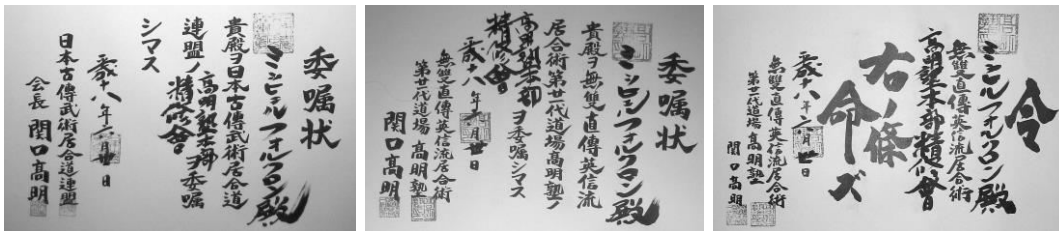 委嘱状
ミシェルフォルクロン殿
貴殿ヲ日本古傳武術居合道
連盟ノ高明塾本部ヲ委嘱
精修會
シマス
日本古傳武術居合道連盟
会長 関口高明
委嘱状
ミシェルフォルクロン殿
貴殿ヲ無雙直傳英信流
居合術第廿一代道場高明塾ノ
高明塾本部ヲ委嘱シマス
精修會
無雙直傳英信流居合術
第廿一代道場 高明塾
関口高明
令
ミシェルフォルクロン殿
無雙直傳英信流居合術
高明塾本部精修會
右ノ條
命ズ
無雙直傳英信流居合術
第廿一代道場 高明塾
関口高明